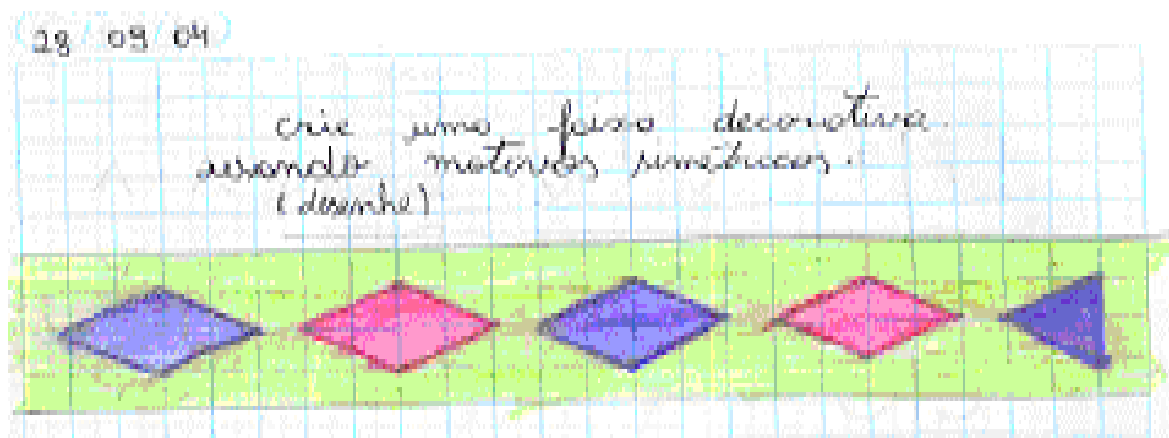 28/09/04
crie uma faixa decorativa
usando motivos simétricos.
(desenhe)